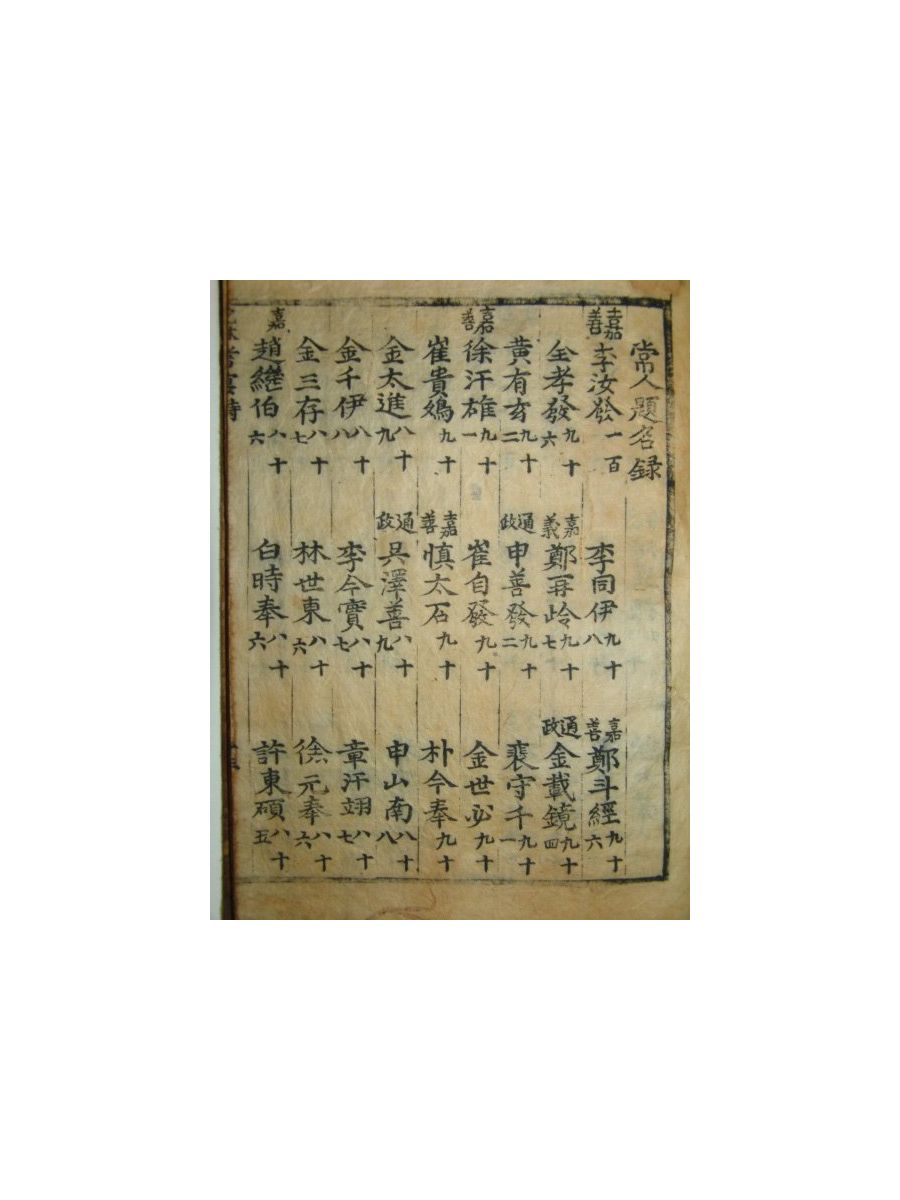 常人題名錄
嘉善李汝發一百 李同伊九十八 嘉善鄭斗經九十六
全孝發九十六 嘉義鄭再岭九十七 通政金載鏡九十四
黄有玄九十二 通政申善發九十二 裴守千九十一
嘉善徐汗雄九十一 崔自發九十 金世必九十
崔貴九十 嘉善慎太石九十 朴今奉九十
金太進八十九 通政吳澤善八十九 申山南八十八
金千伊八十八 李今實八十七 章汗翊八十七
金三存八十七 林世東八十六 徐元奉八十六
嘉趙繼伯八十六 白時奉八十六 許東碩八十五